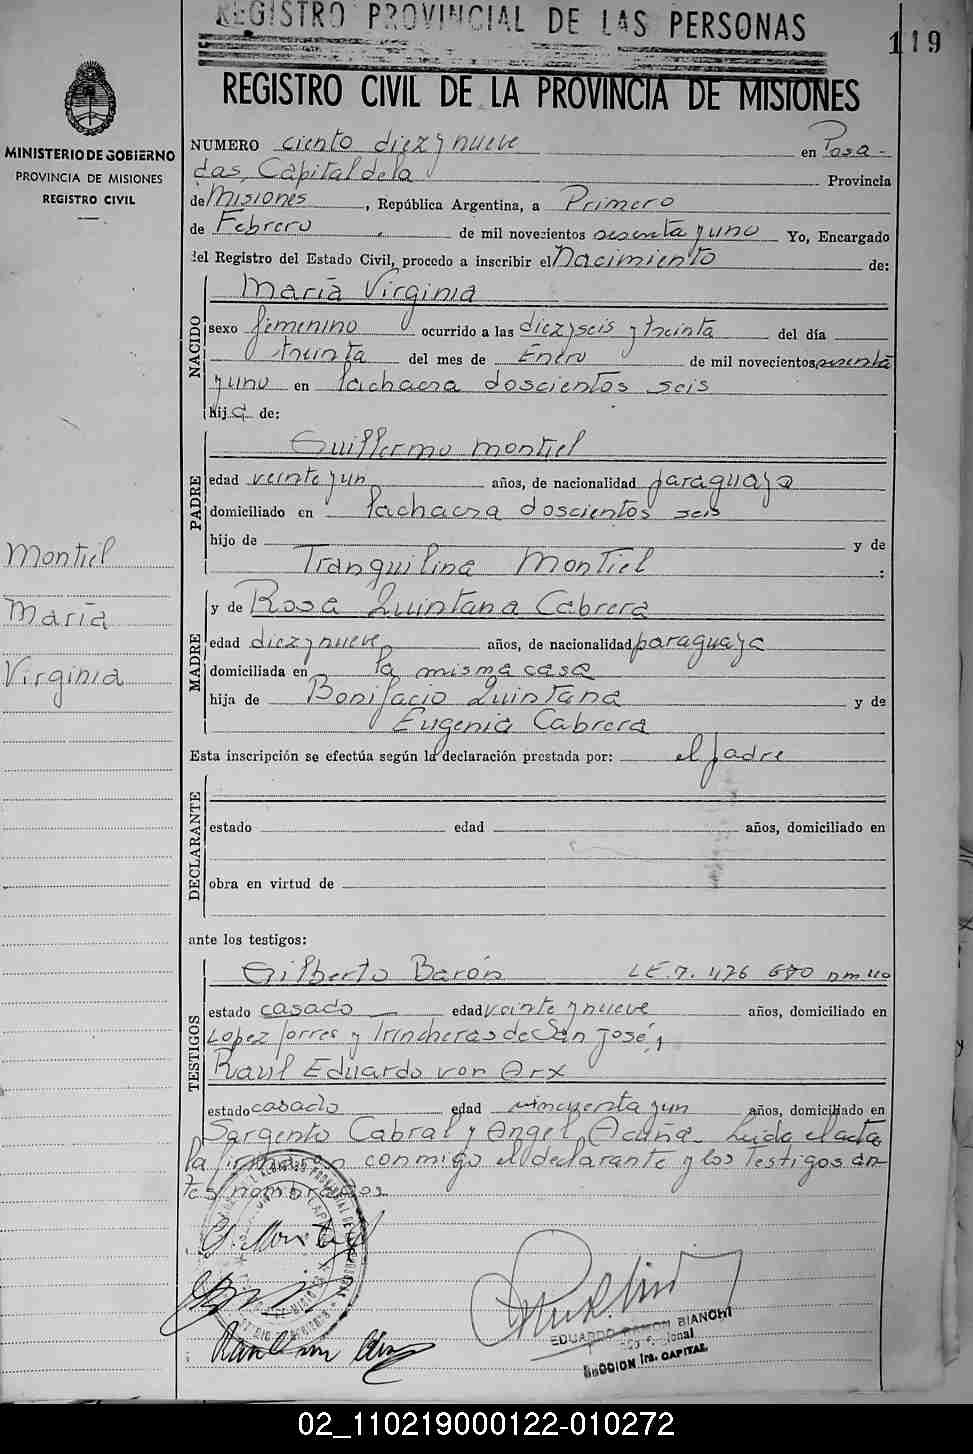 REGISTRO PROVINCIAL DE LAS PERSONAS
119
REGISTRO CIVIL DE LA PROVINCIA DE MISIONES
MINISTERIO DE GOBIERNO
PROVINCIA DE MISIONES
REGISTRO CIVIL
NUMERO ciento diez y nueve en Posa-
das, Capital de la Provincia
de Misiones, República Argentina, a Primero
de Febrero de mil novecientos sesenta y uno Yo, Encargado
del Registro del Estado Civil, procedo a inscribir el Nacimiento de:
NACIDO
María Virginia
sexo femenino ocurrido a las diez y seis y treinta del día
treinta del mes de Enero de mil novecientos sesenta
y uno en la chacra doscientos seis
hija de:
PADRE
Guillermo Montiel
edad veinte y un años, de nacionalidad paraguaya
domiciliado en la chacra doscientos seis
hijo de y de
Tranquilina Montiel :
MADRE
y de Rosa Quintana Cabrera
edad diez y nueve años, de nacionalidad paraguaya
domiciliada en la misma casa
hija de Bonifacio Quintana y de
Eugenia Cabrera
Montiel
María
Virginia
Esta inscripción se efectúa según la declaración prestada por: el padre
DECLARANTE
estado edad años, domiciliado en
obra en virtud de
ante los testigos:
TESTIGOS
Gilberto Barón L.E. 7.476 680 D.M. 40
estado casado edad veinte y nueve años, domiciliado en
Lopez Torres y Trincheras de San José,
Raúl Eduardo von Arx
estado casado edad cincuenta y un años, domiciliado en
Sargento Cabral y Angel Acuña. Leida el acta
la firmaron conmigo el declarante y los testigos an-
tes nombrados.
G. Montiel
EDUARDO RAMON BIANCHI
SECCION 1ra. CAPITAL
02_110219000122-010272